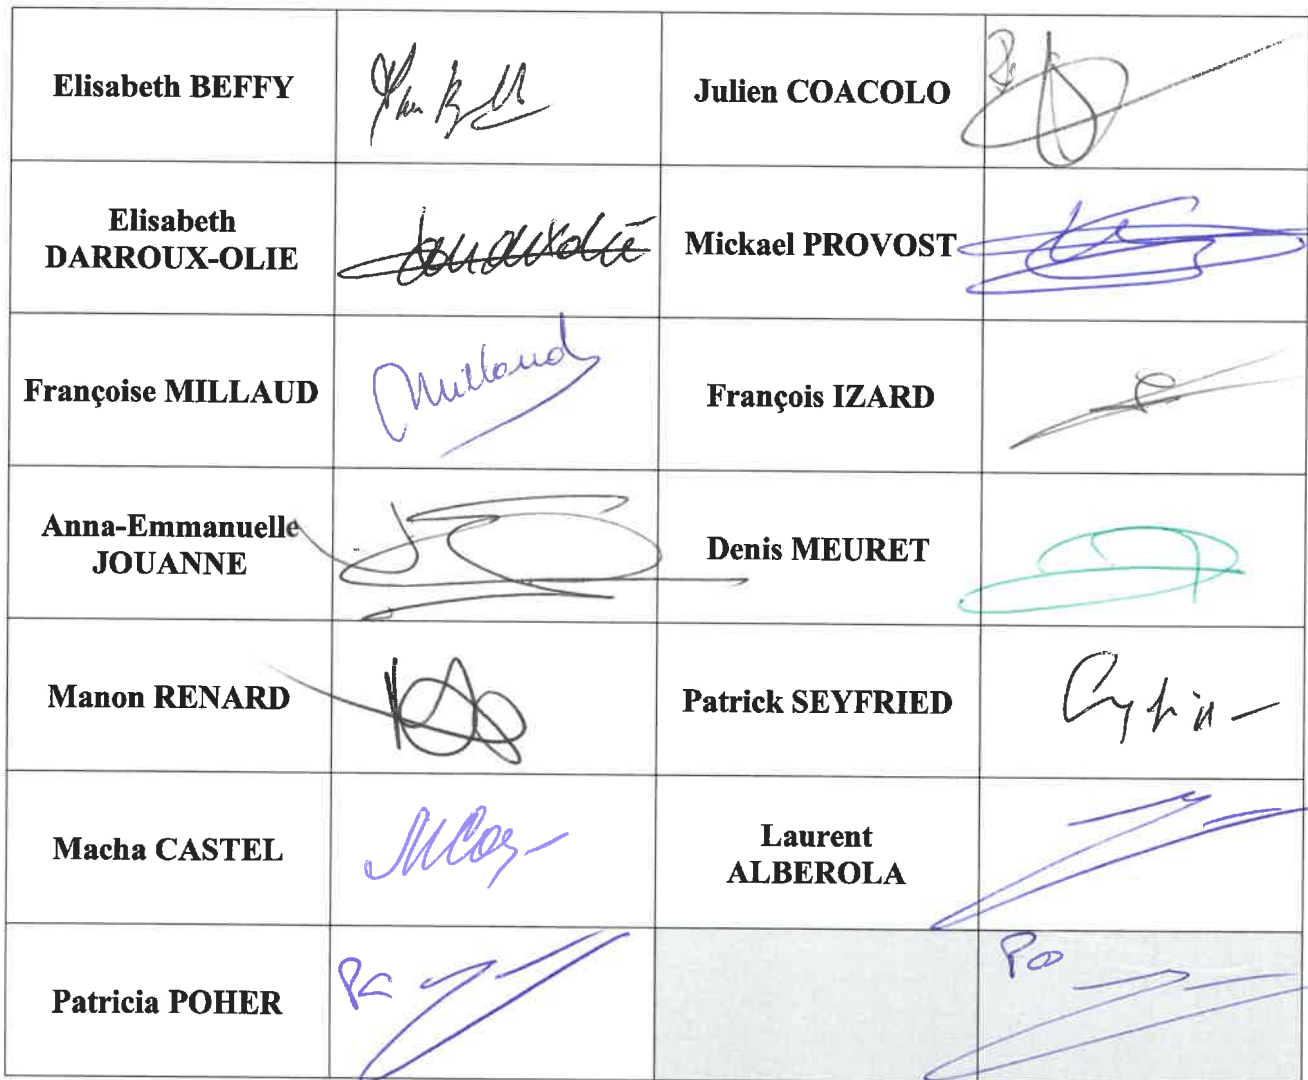 Elisabeth BEFFY
Julien COACOLO
Elisabeth
DARROUX-OLIE
Mickael PROVOST
Françoise MILLAUD
Millaud
François IZARD
Anna-Emmanuelle
JOUANNE
Denis MEURET
Manon RENARD
Patrick SEYFRIED
Macha CASTEL
Laurent
ALBEROLA
Patricia POHER